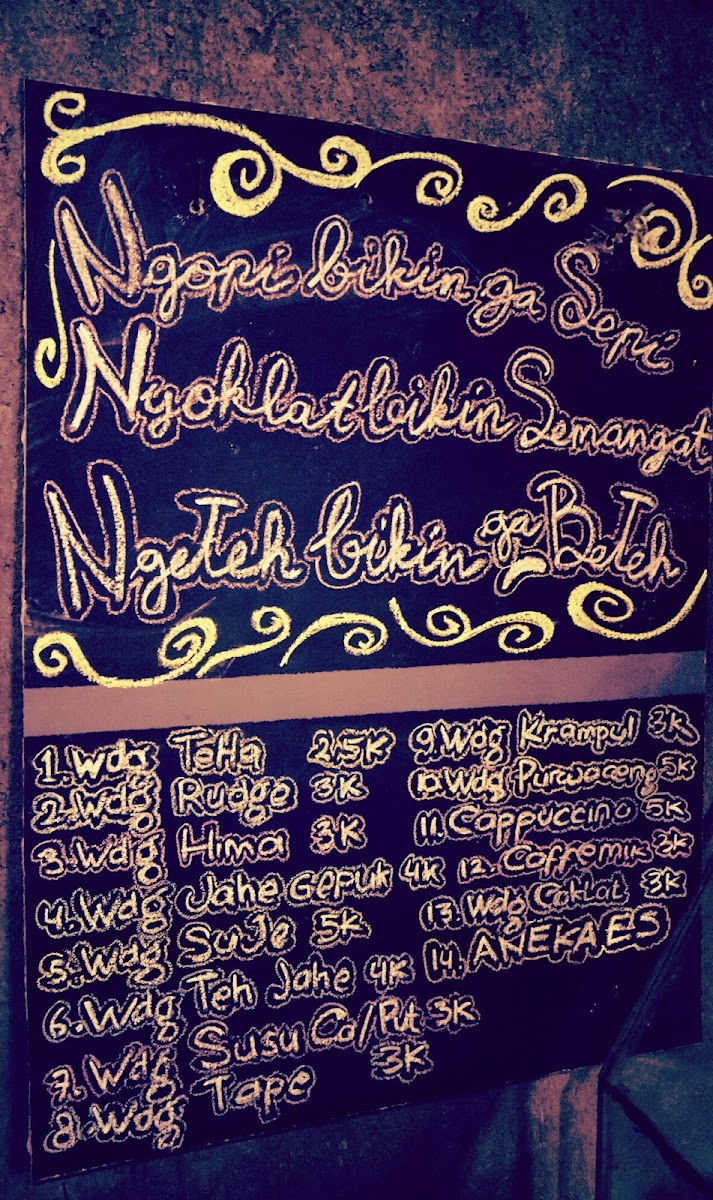 Ngopi bikin ga Sepi
Ngoklat bikin Semangat
NgeTeh bikin ga BeTeh
1. Wdg TeHa 2.5K
2. Wdg Rudge 3K
3. Wdg Hima 3K
4. Wdg Jahe Gepuk 4K
5. Wdg SuJe 5K
6. Wdg Teh Jahe 4K
7. Wdg Susu Co/Put 3K
8. Wdg Tape 3K
9. Wdg Krampul 3K
10. Wdg Purwaceng 5K
11. Cappuccino 5K
12. Coffemix 3K
13. Wdg Coklat 3K
14. ANEKA ES